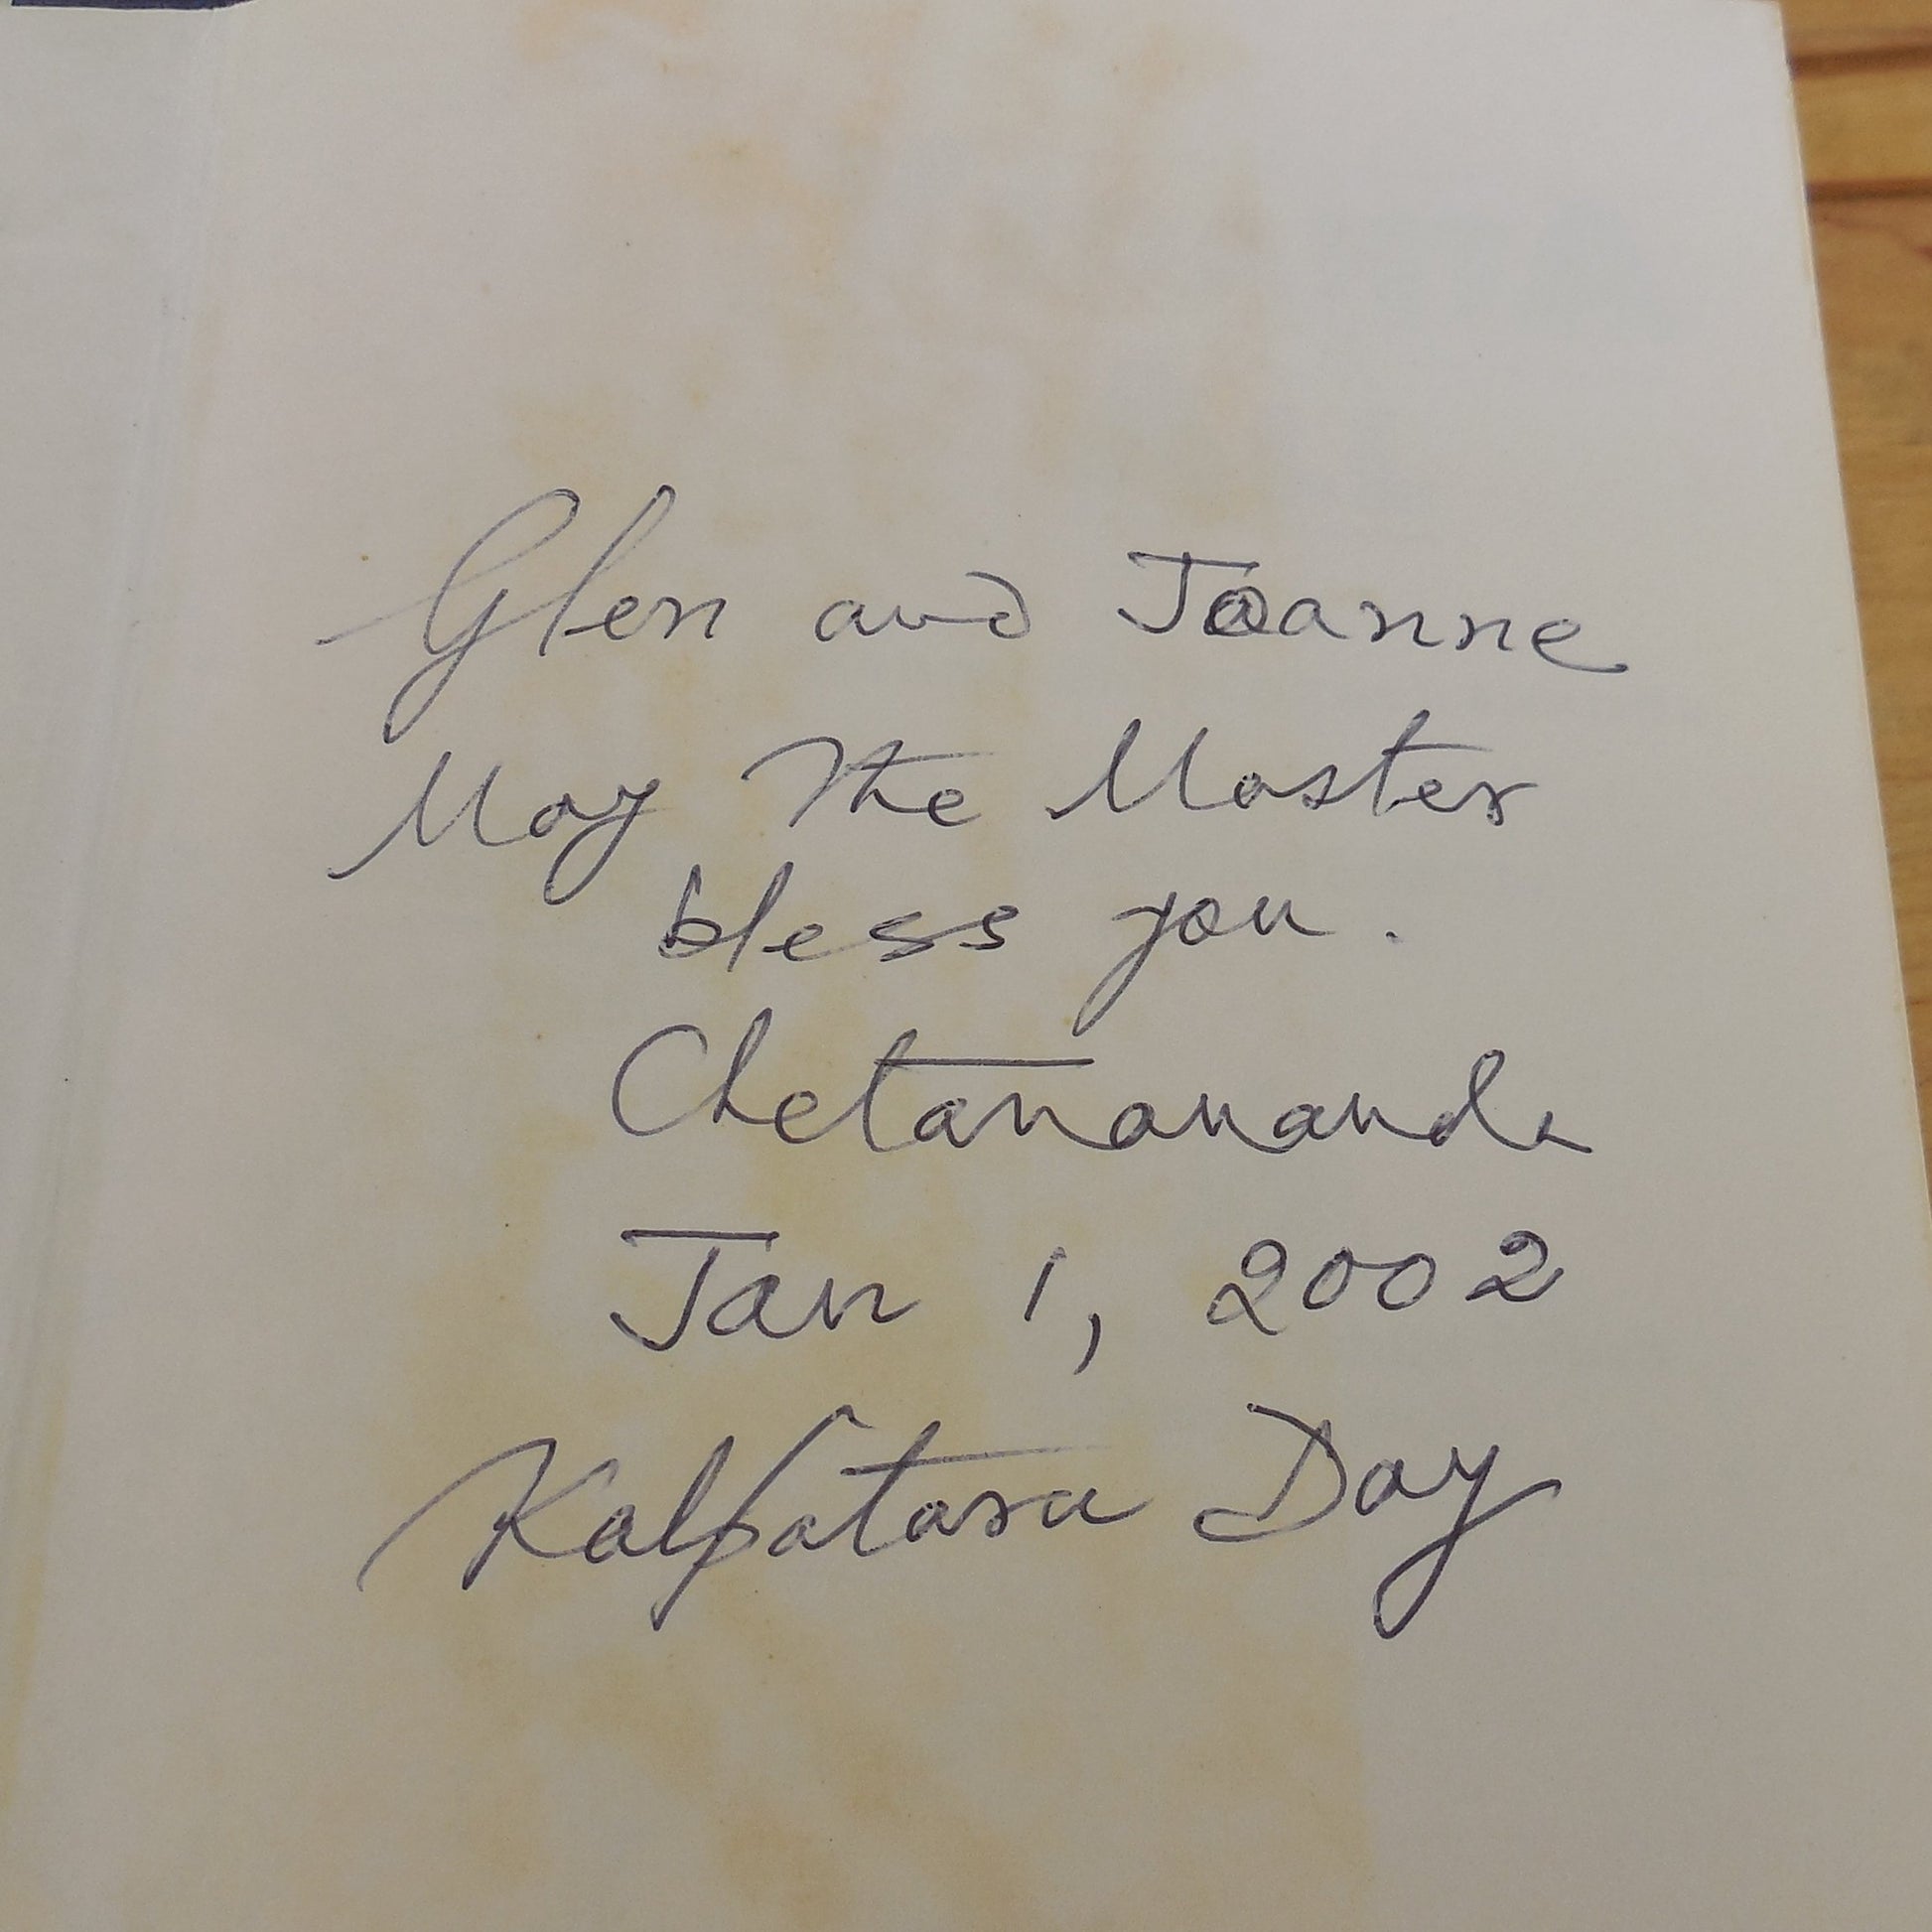 Glen and Joanne
May the Master
bless you.
Chetanananda
Jan 1, 2002
Kalpataru Day